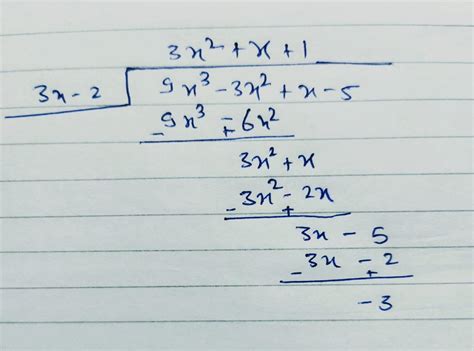 3x² + x + 1
3x - 2 9x³ - 3x² + x - 5
- 9x³ -+ 6x²
3x² + x
- 3x² -+ 2x
3x - 5
- 3x -+ 2
-3